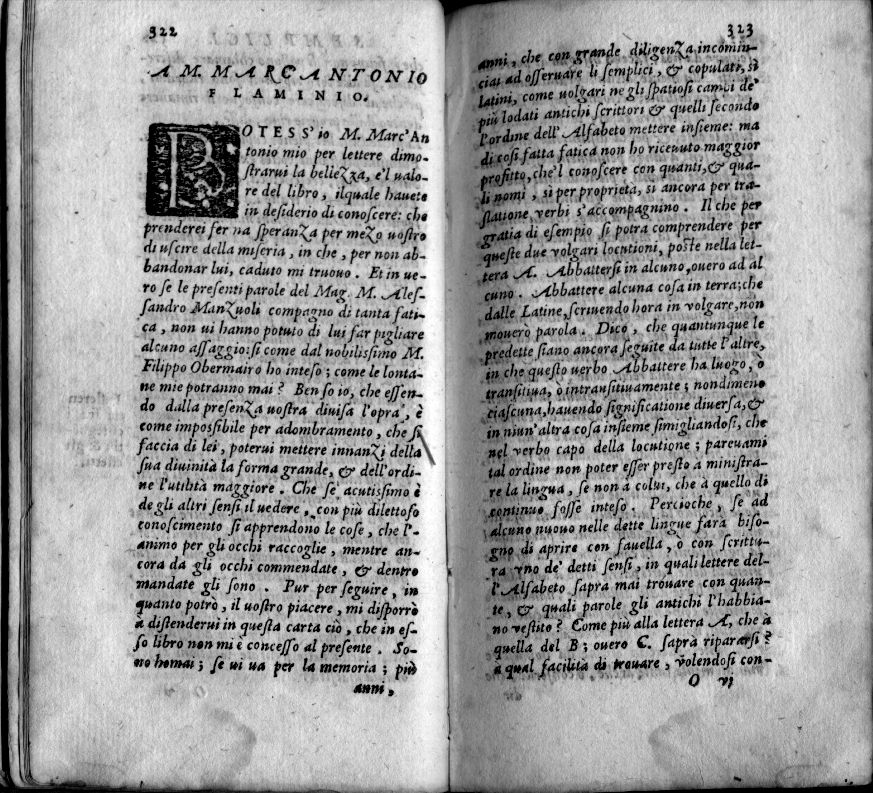 322
A M. MARCANTONIO
FLAMINIO.
POTESS'io M. Marc'An
tonio mio per lettere dimo-
ſtrarui la belleZza, e'l ualo-
re del libro, ilquale hauete
in deſiderio di conoſcere: che
prenderei fer na ſperanZa per meZo uoſtro
di uſcire della miſeria, in che, per non ab-
bandonar lui, caduto mi truouo. Et in ue-
ro ſe le preſenti parole del Mag. M. Aleſ-
ſandro ManZuoli compagno di tanta fati-
ca, non ui hanno potuto di lui far pigliare
alcuno aſſaggio: ſi come dal nobiliſſimo M.
Filippo Obermairo ho inteſo; come le lonta-
ne mie potranno mai? Ben ſo io, che eſſen-
do dalla preſenZa uoſtra diuiſa l'opra, è
come impoſſibile per adombramento, che ſi
faccia di lei, poterui mettere innanZi della
ſua diuinità la forma grande, & dell'ordi-
ne l'utilità maggiore. Che ſe acutiſſimo è
de gli altri ſenſi il uedere, con più dilettoſo
conoſcimento ſi apprendono le coſe, che l'-
animo per gli occhi raccoglie, mentre an-
cora da gli occhi commendate, & dentro
mandate gli ſono. Pur per ſeguire, in
quanto potrò, il uoſtro piacere, mi diſporrò
à diſtenderui in queſta carta ciò, che in eſ-
ſo libro non mi è conceſſo al preſente. So-
no homai; ſe ui ua per la memoria; più
anni,
323
anni, che con grande diligenZa incomin-
ciai ad oſſeruare li ſemplici, & copulati, sì
latini, come uolgari ne gli ſpatioſi campi de'
più lodati antichi ſcrittori & quelli ſecondo
l'ordine dell' Alfabeto mettere inſieme: ma
di coſi fatta fatica non ho riceuuto maggior
profitto, che'l conoſcere con quanti, & qua-
li nomi, sì per proprietà, sì ancora per tra-
ſlatione verbi s'accompagnino. Il che per
gratia di eſempio ſi potra comprendere per
queſte due volgari locutioni, poſte nella let-
tera A. Abbatterſi in alcuno, ouero ad al
cuno. Abbattere alcuna coſa in terra; che
dalle Latine, ſcriuendo hora in volgare, non
mouerò parola. Dico, che quantunque le
predette ſiano ancora ſeguite da tutte l'altre,
in che queſto uerbo Abbattere ha luogo, ò
tranſitiua, ò intranſitiuamente; nondimeno
ciaſcuna, hauendo ſignificatione diuerſa, &
in niun'altra coſa inſieme ſimigliandoſi, che
nel verbo capo della locutione; pareuami
tal ordine non poter eſſer preſto a miniſtra-
re la lingua, ſe non à colui, che à quello di
continuo foſſe inteſo. Percioche, ſe ad
alcuno nuouo nelle dette lingue farà biſo-
gno di aprire con fauella, ò con ſcrittu-
ra vno de' detti ſenſi, in quali lettere del-
l'Alfabeto ſapra mai trouare con quan-
te, & quali parole gli antichi l'habbia-
no veſtito? Come più alla lettera A, che à
quella del B; ouero C. ſaprà ripararſi?
à qual facilità di trouare, volendoſi con-
O vj